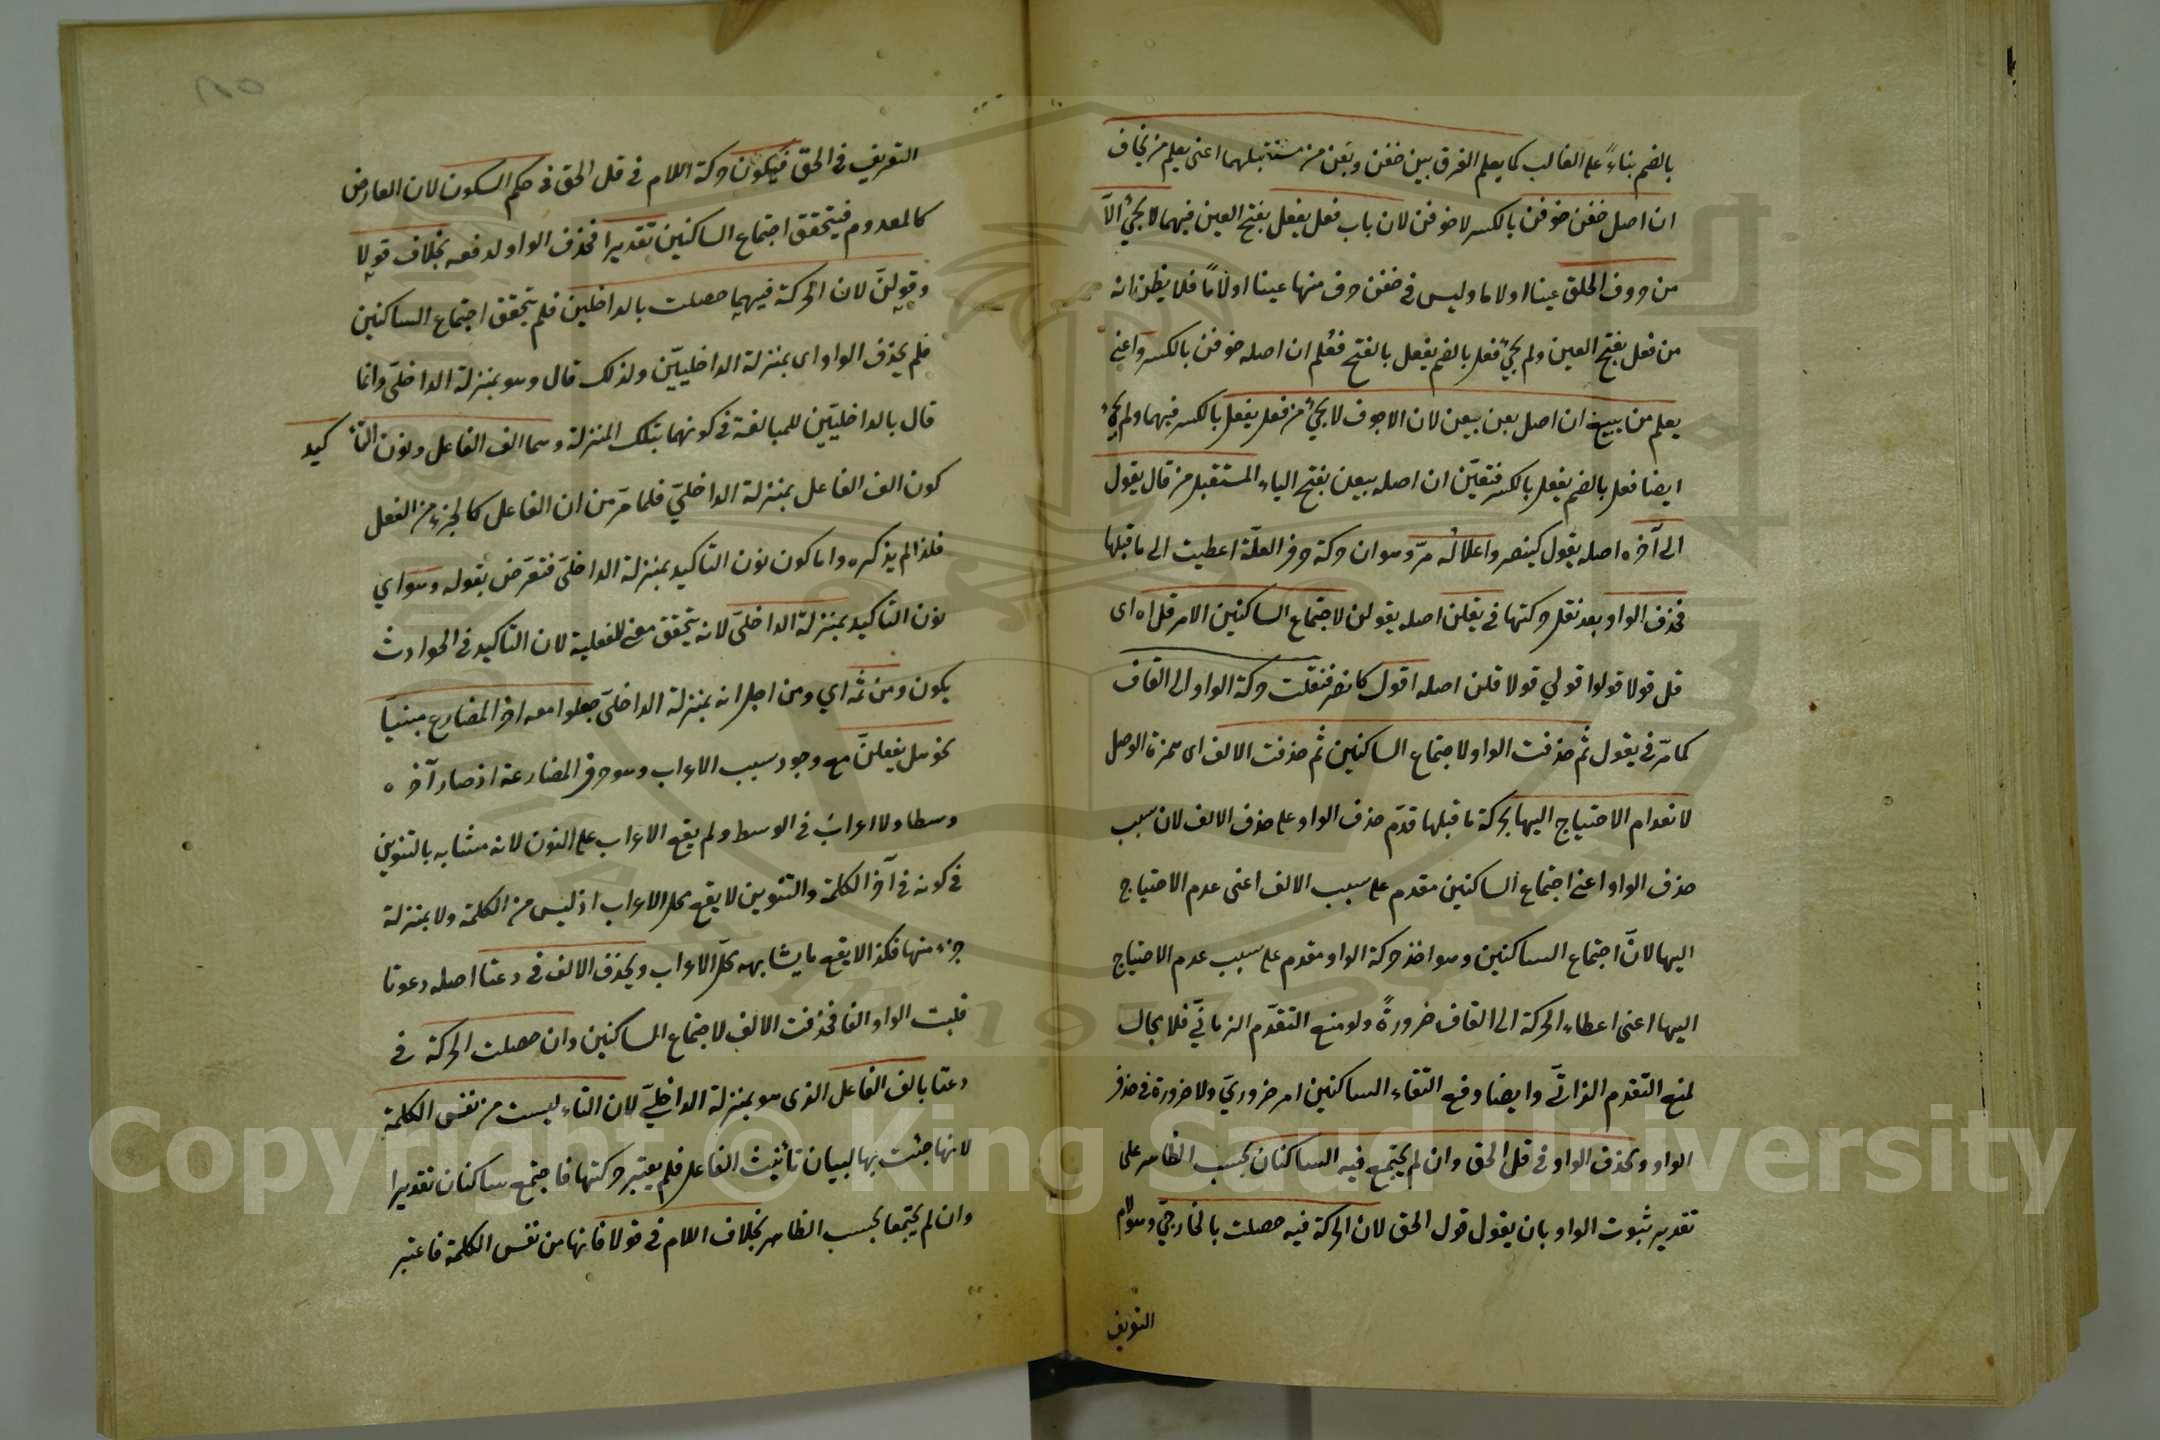 بالضم بناءً على الغالب كما يعلم الفرق بين خفن وبعن من مستقبلهما اعنى يعلم من يخاف
ان اصل خفن خوفن بالكسر لا خوفن لان باب فعل يفعل بفتح العين فيهما لا يجئ الّا
من حروف الحلق عينا او لاما وليس فى خفن حرف منها عينا او لاماً فلا يظن انه
من فعل بفتح العين ولم يجئ فعل بالضم يفعل بالفتح فعُلم ان اصله خوفن بالكسر واعنى
يعلم من يبيع ان اصل بعن بيعن لان الاجوف لا يجئ من فعل يفعل بالكسر فيهما ولم يجئ
ايضا فعل بالضم يفعل بالكسر فتعيّن ان اصله بيعن بفتح الياء المستقبل من قال يقول
الى آخره اصله يقول كينصر واعلاله مرّ وهو ان حركة حرف العلّة اعطيت الى ما قبلها
فحذف الواو بعد نقل حركتها فى يقلن اصله يقولن لاجتماع الساكنين الامر قل اه اى
قل قولا قولوا قولي قولا قلن اصله اقول كانصر فنقلت حركة الواو الى القاف
كما مرّ فى يقول ثم حذفت الواو لاجتماع الساكنين ثم حذفت الالف اى همزة الوصل
لانعدام الاحتياج اليها بحركة ما قبلها قدّم حذف الواو على حذف الالف لان سبب
حذف الواو اعنى اجتماع الساكنين مقدم على سبب الالف اعنى عدم الاحتياج
اليها لانّ اجتماع الساكنين وهو اخذ حركة الواو مقدم على سبب عدم الاحتياج
اليها اعنى اعطاء الحركة الى القاف ضرورةً ولو منع التقدّم الزمانيّ فلا مجال
لمنع التقدم الذاتيّ وايضا دفع التقاء الساكنين امر ضروريّ ولا ضرورة فى حذف
الواو ويحذف الواو فى قل الحق وان لم يجتمع فيه الساكنان بحسب الظاهر على
تقدير ثبوت الواو بان يقول قول الحق لان الحركة فيه حصلت بالخارجيّ وهو لام
التعريف
التعريف فى الحق فيكون حركة اللام فى قل الحق فى حكم السكون لان العارض
كالمعدوم فيتحقق اجتماع الساكنين تقديرا فحذف الواو لدفعه بخلاف قولا
وقولنّ لان الحركة فيهما حصلت بالداخلين فلم يتحقق اجتماع الساكنين
فلم يحذف الواو اى بمنزلة الداخليّين ولذلك قال وهو بمنزلة الداخليّ وانما
قال بالداخليّين للمبالغة فى كونهما بتلك المنزلة وهما الف الفاعل ونون التأكيد
كون الف الفاعل بمنزلة الداخليّ فلما مرّ من ان الفاعل كالجزء من الفعل
فلذا لم يذكره واما كون نون التأكيد بمنزلة الداخليّ فتعرّض بقوله وهو اي
نون التأكيد بمنزلة الداخليّ لانه يتحقق معنى الفعلية لان التأكيد فى الحوادث
يكون ومن ثمه اي ومن اجل انه بمنزلة الداخليّ جعلوا معه آخر المضارع مبنياً
نحو هل يفعلنّ مع وجود سبب الاعراب وهو حرف المضارعة اذ صار آخره
وسطا ولا اعراب فى الوسط ولم يقع الاعراب على النون لانه مشابه بالتنوين
فى كونه فى آخر الكلمة والتنوين لا يقع محل الاعراب اذ ليس من الكلمة ولا بمنزلة
جزء منها فكذا لا يقع ما يشابهه محلّ الاعراب ويحذف الالف فى دعتا اصله دعوتا
قلبت الواو الفا فحذفت الالف لاجتماع الساكنين وان حصلت الحركة فى
دعتا بالف الفاعل الذى هو بمنزلة الداخليّ لان التاء ليست من نفس الكلمة
لانها جئت بها لبيان تأنيث الفاعل فلم يعتبر حركتها فاجتمع ساكنان تقديرا
وان لم يجتمعا بحسب الظاهر بخلاف اللام فى قولا فانها من نفس الكلمة فاعتبر
Copyright © King Saud University